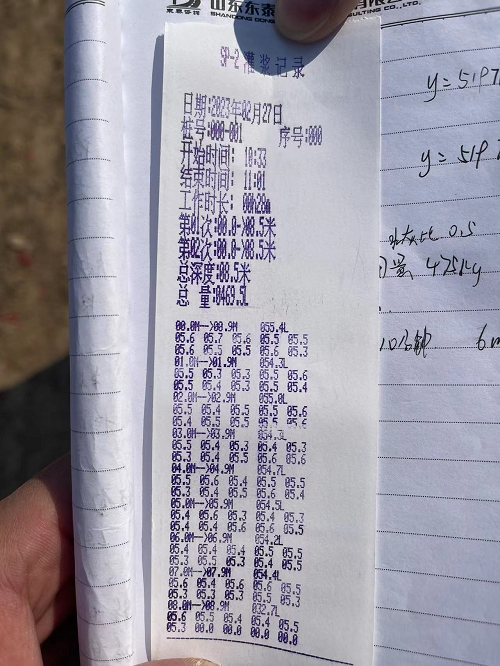 山东东泰
SHANDONG DONG
SULTING CO.,LTD.
SP-2 灌浆记录
日期:2023年02月27日
桩号:000-001 序号:000
开始时间: 10:33
结束时间: 11:01
工作时长: 00h28m
第01次:00.0->08.5米
第02次:00.0->08.5米
总深度:08.5米
总 量:0469.5L
00.0M-->00.9M 055.4L
05.6 05.7 05.6 05.5 05.5
05.6 05.5 05.5 05.6 05.3
01.0M-->01.9M 054.3L
05.5 05.3 05.3 05.5 05.6
05.5 05.4 05.3 05.5 05.4
02.0M-->02.9M 055.0L
05.5 05.4 05.5 05.5 05.6
05.4 05.5 05.5 05.5 05.6
03.0M-->03.9M 054.3L
05.5 05.4 05.3 05.4 05.3
05.3 05.4 05.5 05.6 05.6
04.0M-->04.9M 054.7L
05.5 05.6 05.4 05.5 05.5
05.3 05.4 05.5 05.6 05.4
05.0M-->05.9M 054.5L
05.4 05.6 05.3 05.4 05.3
05.4 05.4 05.6 05.6 05.5
06.0M-->06.9M 054.2L
05.4 05.4 05.4 05.5 05.5
05.3 05.5 05.3 05.4 05.5
07.0M-->07.9M 054.4L
05.6 05.4 05.6 05.6 05.5
05.3 05.3 05.3 05.5 05.3
08.0M-->08.9M 032.7L
05.6 05.5 05.4 05.4 05.5
05.3 00.0 00.0 00.0 00.0
y=5197
y=519
0.5
量 475kg
10分钟 6m